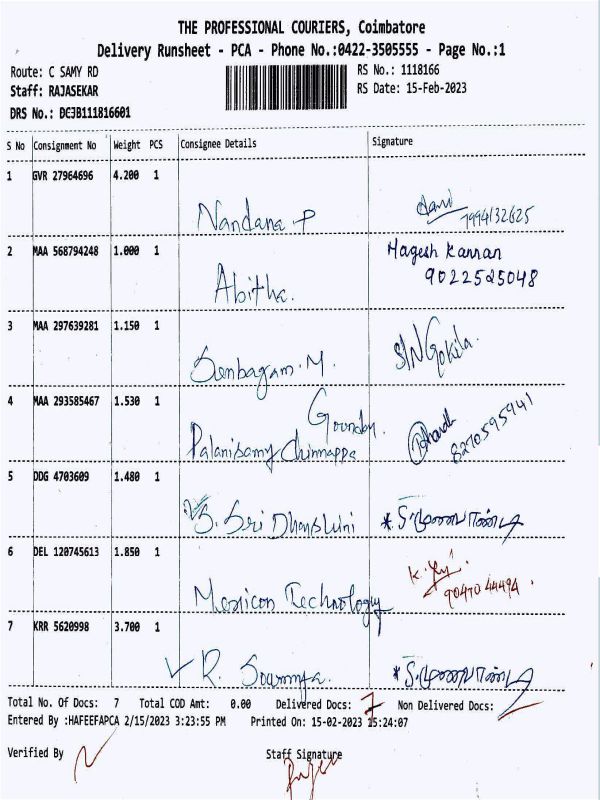 THE PROFESSIONAL COURIERS, Coimbatore
Delivery Runsheet - PCA - Phone No.:0422-3505555 - Page No.:1
Route: C SAMY RD
RS No.: 1118166
Staff: RAJASEKAR
RS Date: 15-Feb-2023
DRS No.: DCJB111816601
S No Consignment No Weight PCS Consignee Details Signature
1 GVR 27964696 4.200 1
Nandana P
7994132625
2 MAA 568794248 1.000 1
Magesh Kannan
Abitha.
9022525048
3 MAA 297639281 1.150 1
Senbagam.M. S/N Gokila.
4 MAA 293585467 1.530 1
Gounder.
Palanisamy Chinnappa
Bharath 8270595941
5 DDG 4703609 1.480 1
S. Sri Dharshini
6 DEL 120745613 1.850 1
90470 44494
Mexicon Technology
7 KRR 5620998 3.700 1
R. Sowmya.
Total No. Of Docs: 7 Total COD Amt: 0.00 Delivered Docs: 7 Non Delivered Docs:
Entered By :HAFEEFAPCA 2/15/2023 3:23:55 PM Printed On: 15-02-2023 15:24:07
Verified By Staff Signature